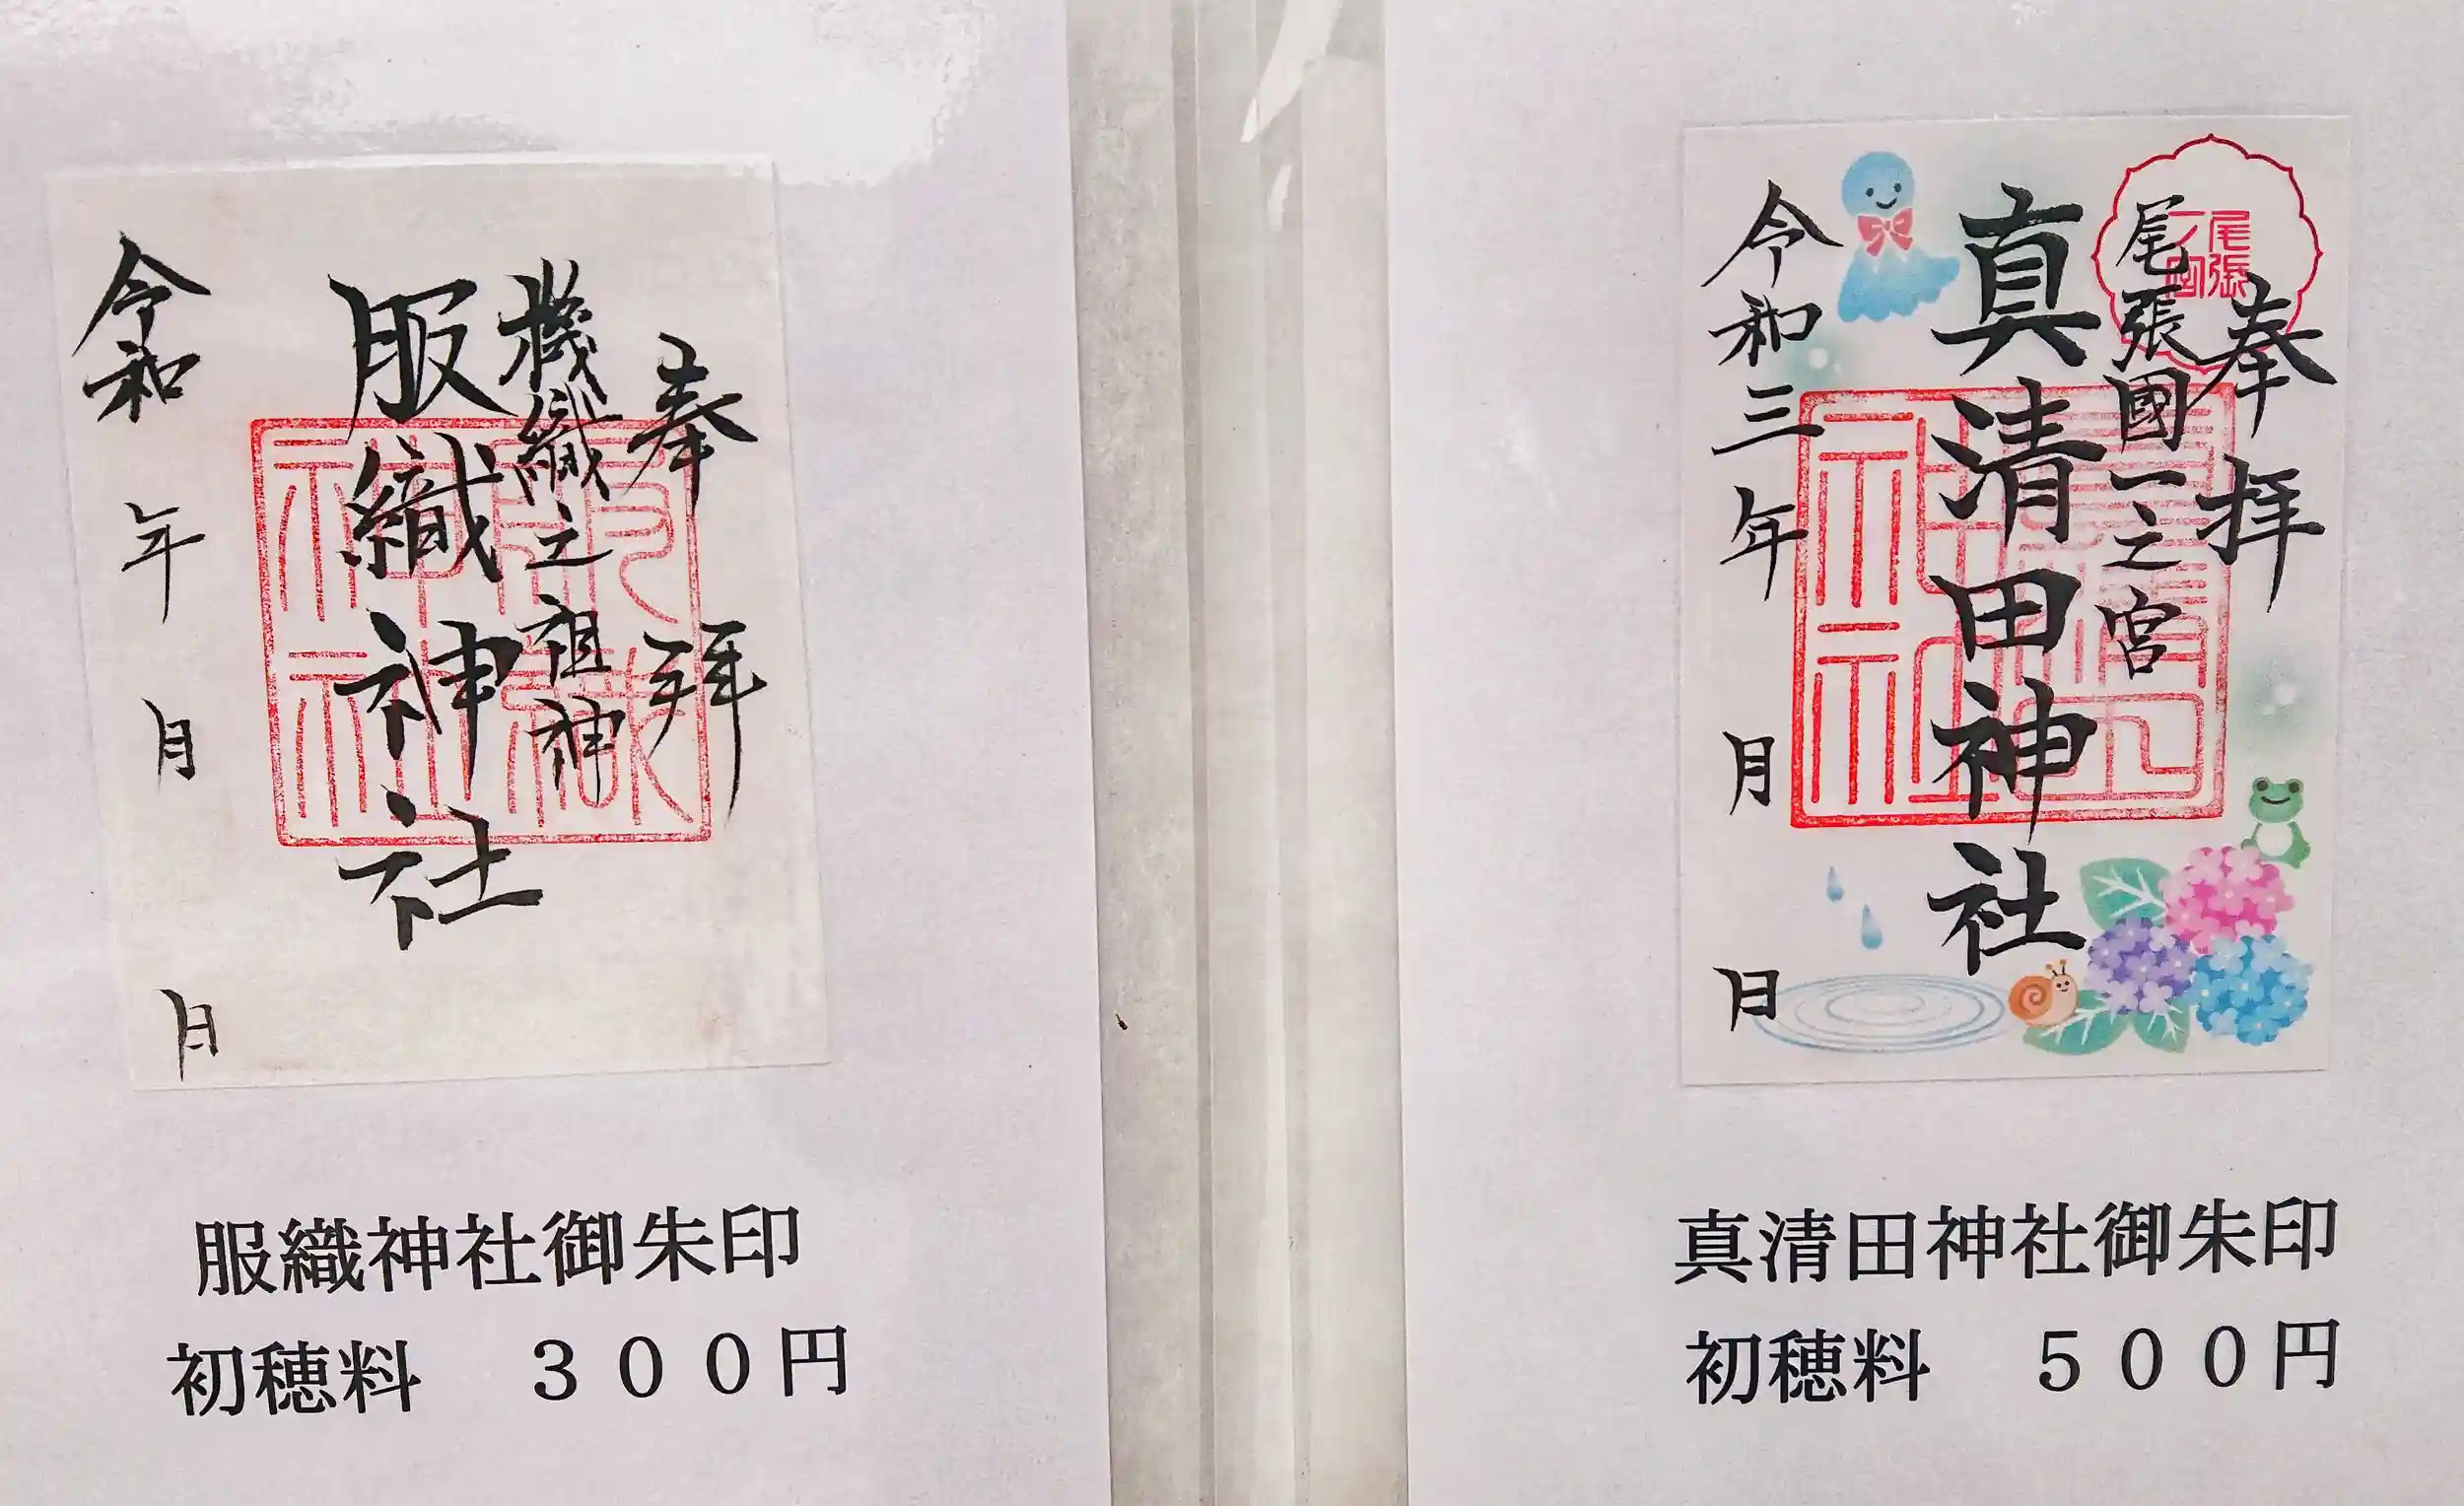 奉拝
機織之祖神
服織神社
令和 年 月 日
服織神社
服織神社御朱印
初穂料 300円
奉拝
尾張國一之宮
尾張
一宮
真清田神社
令和三年 月 日
真清田神社御朱印
初穂料 500円